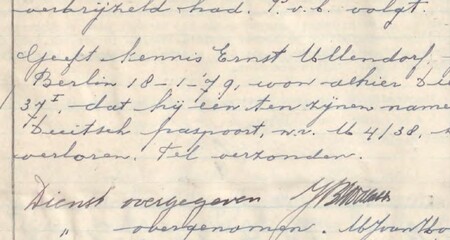 verbrijzeld had. P.v.b. volgt.
Geeft kennis Ernst Ullendorf,
Berlin 18-1-'79, won. alhier
37 I, dat hij een ten zijnen name
Duitsch paspoort, nr. U 4/38,
verloren. Tel. verzonden.
Dienst overgegeven
" overgenomen.